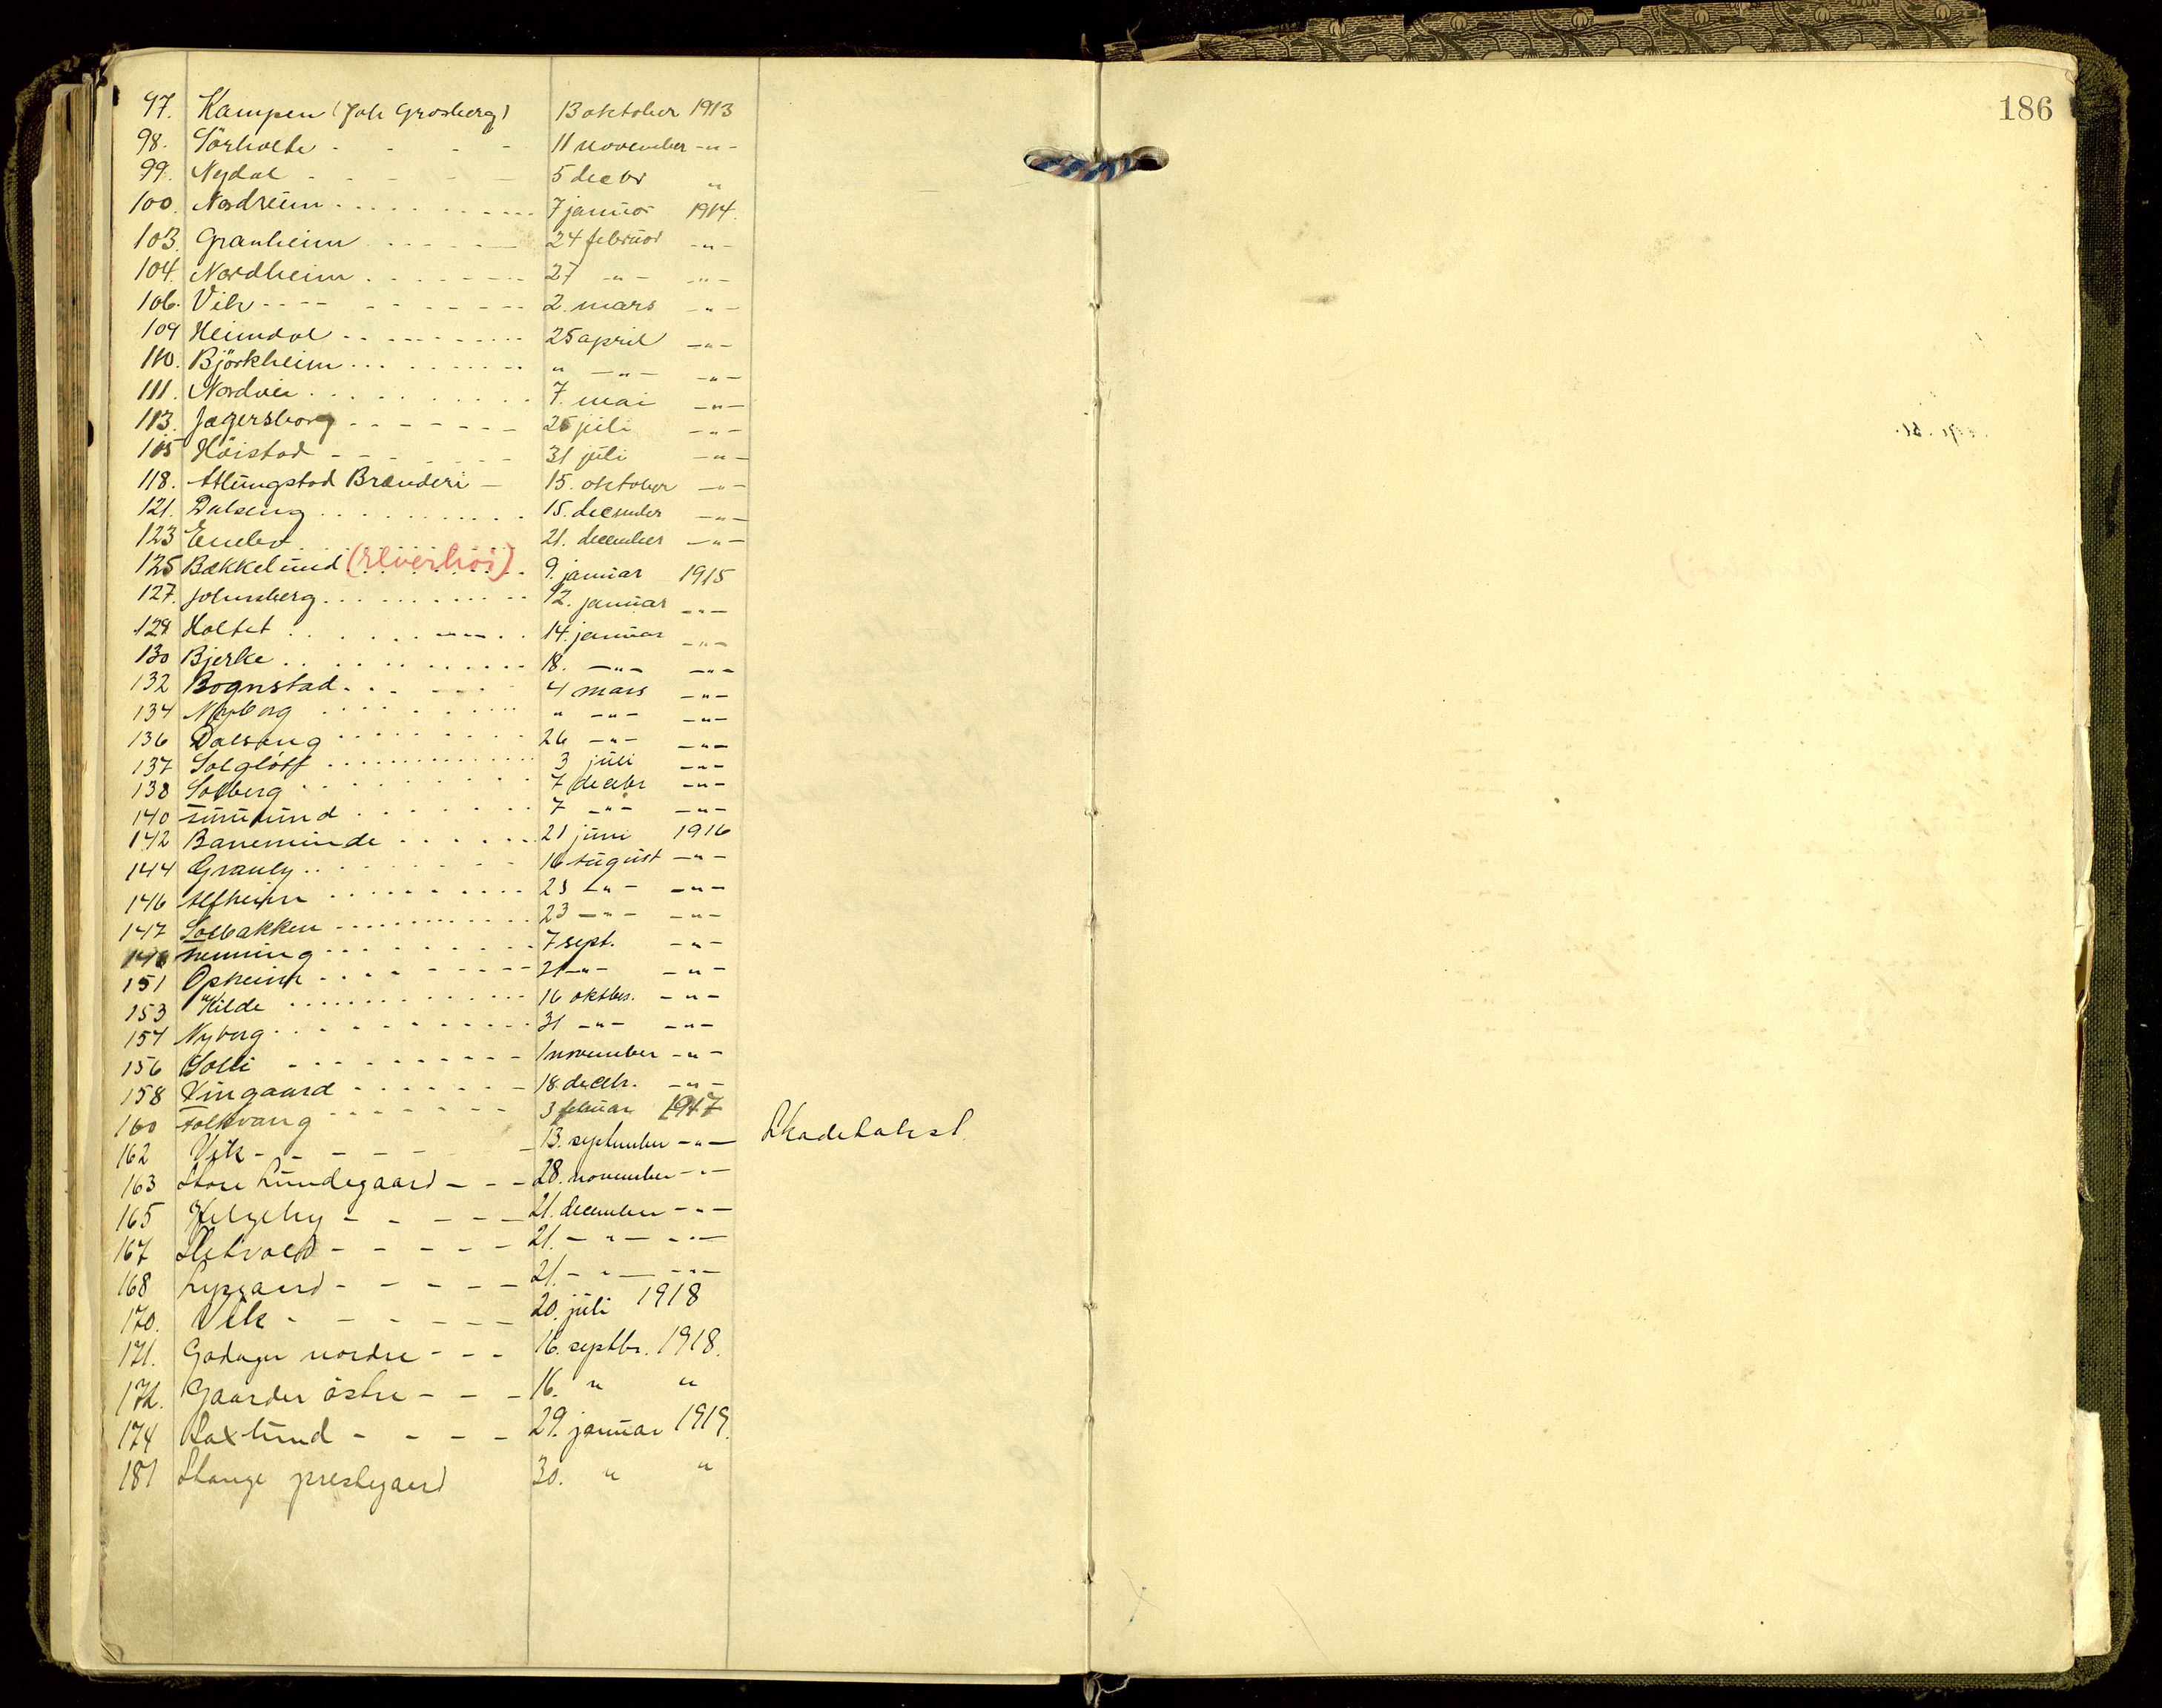 186
97. Kampen (Joh Grosberg) 13 oktober 1913
98. Sörholte - - - - 11 november -"-
99. Nydal - - - - - 5 decbr "
100. Nordreim . . . . . . . . 7 januar 1914.
103. Granheim . . . . . 24 februar -"-
104. Nordheim . . . . . . 27 -"- -"-
106. Vik - - - - - - - - - 2. mars -"-
109 Heimdal . . . . . . . . 25 april -"-
110. Björkheim . . . . . . . " -"- -"-
111. Nordvei . . . . . . . . . 7. mai -"-
113. Jægersborg - - - - - - 25 juli -"-
115 Höistad - - - - - - 31 juli -"-
118. Atlungstad Brænderi - 15. oktober -"-
121. Dalseng . . . . . . . . . 15. december -"-
123 Enebo . . . . . . 21. december -"-
125 Bækkelund (Kløverhøi) 9. januar 1915
127. Johnsberg . . . . . . . . 12. januar -"-
129 Holtet . . . . . . . . 14. januar -"-
130 Bjerke . . . . . . . . . 18. -"- -"-
132 Bognstad . . . . . . . 4 mars -"-
134 Nyborg . . . . . . . . " -"- -"-
136 Dalseng . . . . . . . . 26 -"- -"-
137 Solglött . . . . . . . . . 3 juli -"-
138 Solberg . . . . . . . . 7 decbr -"-
140 . . . . . . . 7 -"- -"-
142 Baneminde . . . . . . 21 juni 1916
144 Granly . . . . . . . . 16 august -"-
146 Alfheim . . . . . . . . . 23 -"- -"-
147 Solbakken . . . . . . . . 23 -"- -"-
Henning . . . . . . . . 7 sept. -"-
151 Opheim . . . . . . . . 21 -"- -"-
153 Kilde . . . . . . . . . . 16 oktbr. -"-
154 Nyborg . . . . . . . . . 31 -"- -"-
156 Solli - - - - - - - - - 1 november -"-
158 Vingaard - - - - - - - 18. decbr. -"-
160 Folkvang - - - - - - - 3 februar 1917
162 Vik - - - - - - - 13. september -"- Skadetakst.
163 Store Lundegaard - - - 28. november -"-
165 Helgeby - - - - - - 21. december -"-
167 Sletvold - - - - - 21. -"- -"-
168 Lysgaard - - - - - 21. -"- -"-
170. Vik - - - - - - 20. juli 1918
171. Godager nordre - - - 16. septbr. 1918.
172. Gaarder östre - - - 16. " "
174 Laxlund - - - - 29. januar 1919.
181 Stange prestegaard 30. " "